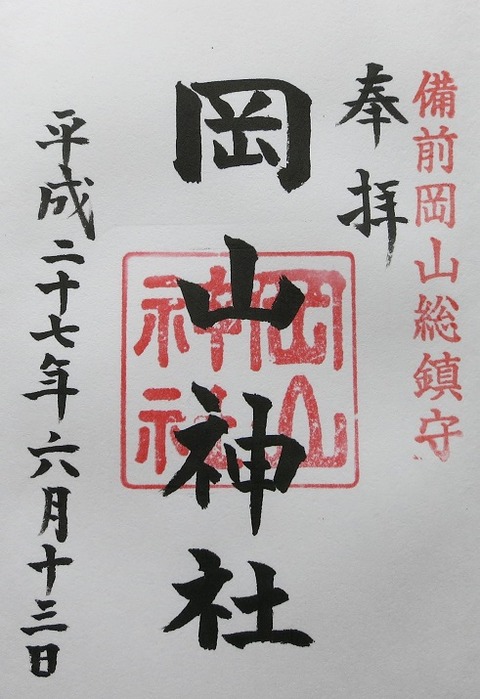 備前岡山総鎮守
奉拝
岡山神社
岡山
神社
平成二十七年六月十三日